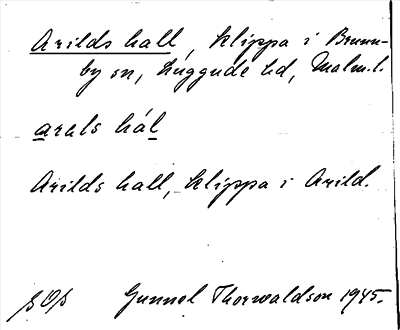 Arilds hall, klippa i Brunn-
by sn, Luggude hd, Malm.l.
arals hál
Arilds hall, klippa i Arild.
Gunnel Thorwaldson 1945.